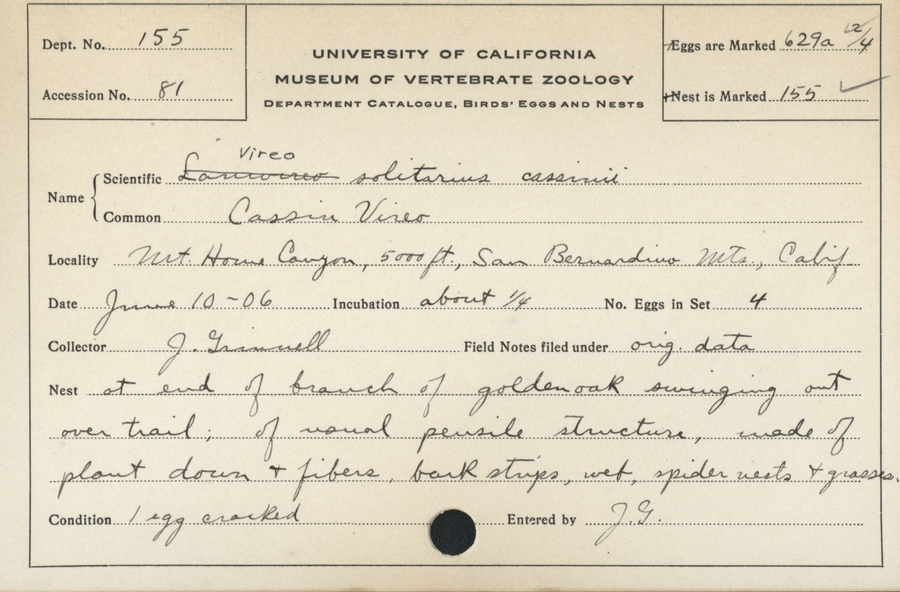 Dept. No. 155
Accession No. 81
UNIVERSITY OF CALIFORNIA
MUSEUM OF VERTEBRATE ZOOLOGY
DEPARTMENT CATALOGUE, BIRDS' EGGS AND NESTS
Eggs are Marked 629a 12/4
Nest is Marked 155 ✓
Vireo
Name { Scientific Lanivireo solitarius cassinii
Common Cassin Vireo
Locality Mt. Home Canyon, 5000 ft., San Bernardino Mts., Calif
Date June 10-06 Incubation about 1/4 No. Eggs in Set 4
Collector J. Grinnell Field Notes filed under orig. data
Nest at end of branch of golden oak swinging out
over trail; of usual pensile structure, made of
plant down + fibers, bark strips, web, spider nests + grasses.
Condition 1 egg cracked Entered by J.G.